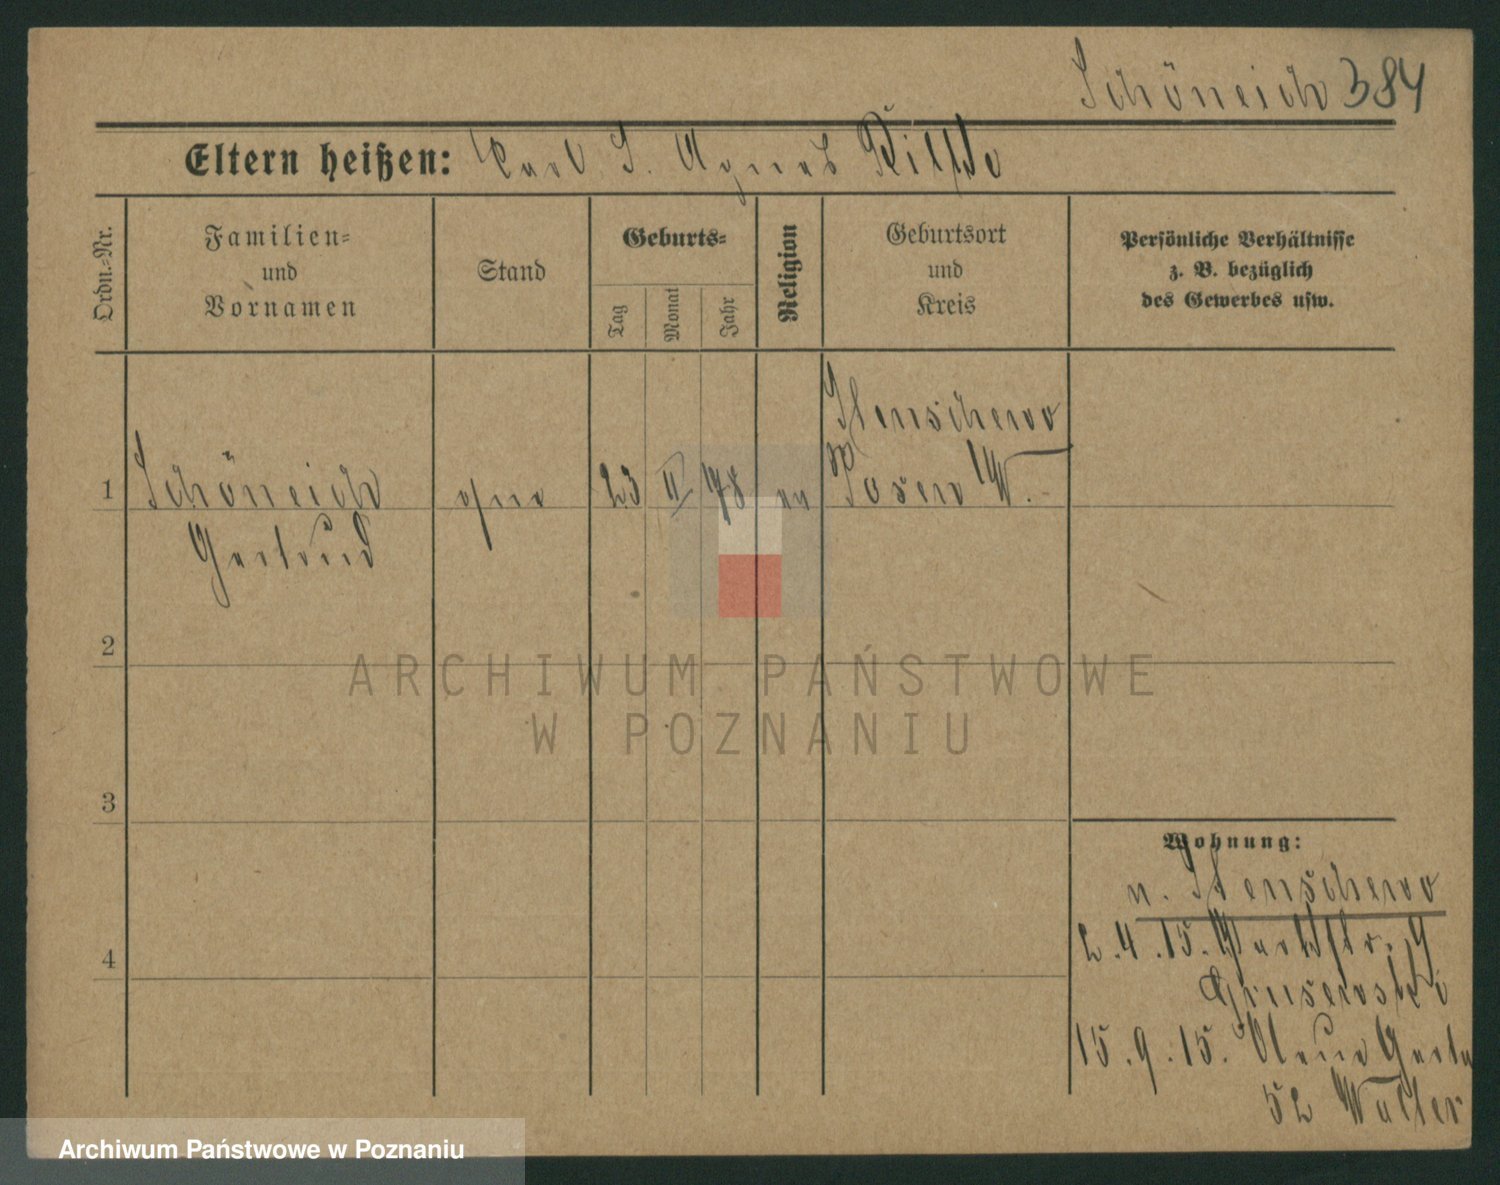 Schöneich 384
Eltern heißen: Carl S. Agnes
Ordn.-Nr.
Familien-
und
Vornamen
Stand
Geburts-
Tag
Monat
Jahr
Religion
Geburtsort
und
Kreis
Persönliche Verhältnisse
z. B. bezüglich
des Gewerbes usw.
Stenschewo
Posen W.
1 Schöneich ohne 23 II 98 ev
Gertrud
2
3
4
ARCHIWUM PAŃSTWOWE
W POZNANIU
Wohnung:
n. Stenschewo
2.4.15. 
15.9.15. Neue Garte
52 Walter
Archiwum Państwowe w Poznaniu